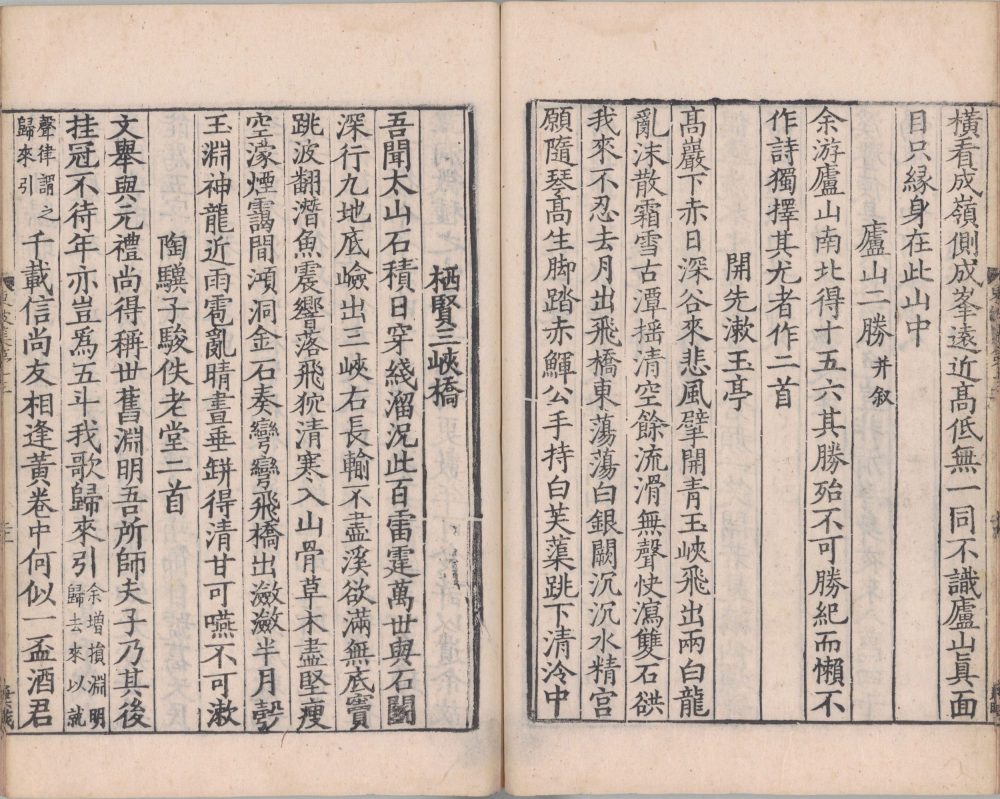 橫看成嶺側成峯遠近髙低無一同不識廬山眞面
目只緣身在此山中
廬山二勝 并叙
余游廬山南北得十五六其勝殆不可勝紀而懶不
作詩獨擇其尤者作二首
開先漱玉亭
髙巖下赤日深谷來悲風擘開青玉峽飛出兩白龍
亂沫散霜雪古潭摇清空餘流滑無聲快瀉雙石谼
我來不忍去月出飛橋東蕩蕩白銀闕沉沉水精宫
願隨琴髙生脚踏赤鯶公手持白芙蕖跳下清泠中
栖賢三峽橋
吾聞太山石積日穿綫溜況此百雷霆萬世與石鬭
深行九地底嶮出三峽右長輸不盡溪欲滿無底竇
跳波翻潛魚震響落飛狖清寒入山骨草木盡堅瘦
空濛煙靄間澒洞金石奏彎彎飛橋出瀲瀲半月彀
玉淵神龍近雨雹亂晴晝垂缾得清甘可嚥不可漱
陶驥子駿佚老堂二首
文舉與元禮尚得稱世舊淵明吾所師夫子乃其後
挂冠不待年亦豈爲五斗我歌歸來引 余増損淵明歸去來以就
聲律謂之歸來引 千載信尚友相逢黃卷中何似一盃酒君